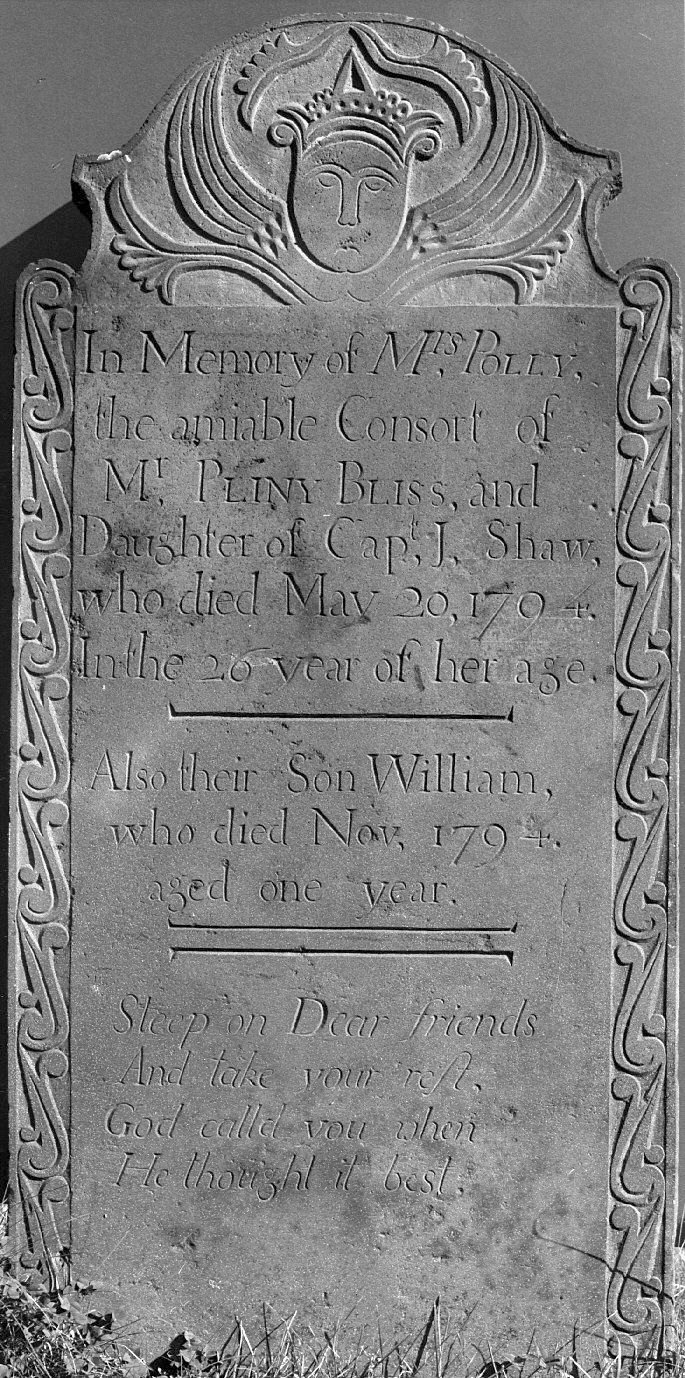 In Memory of Mrs. POLLY,
the amiable Consort of
Mr. PLINY BLISS, and
Daughter of Capt. J. Shaw,
who died May 20, 1794.
In the 26 year of her age.
Also their Son William,
who died Nov. 1794.
aged one year.
Sleep on Dear friends
And take your rest,
God calld you when
He thought it best.